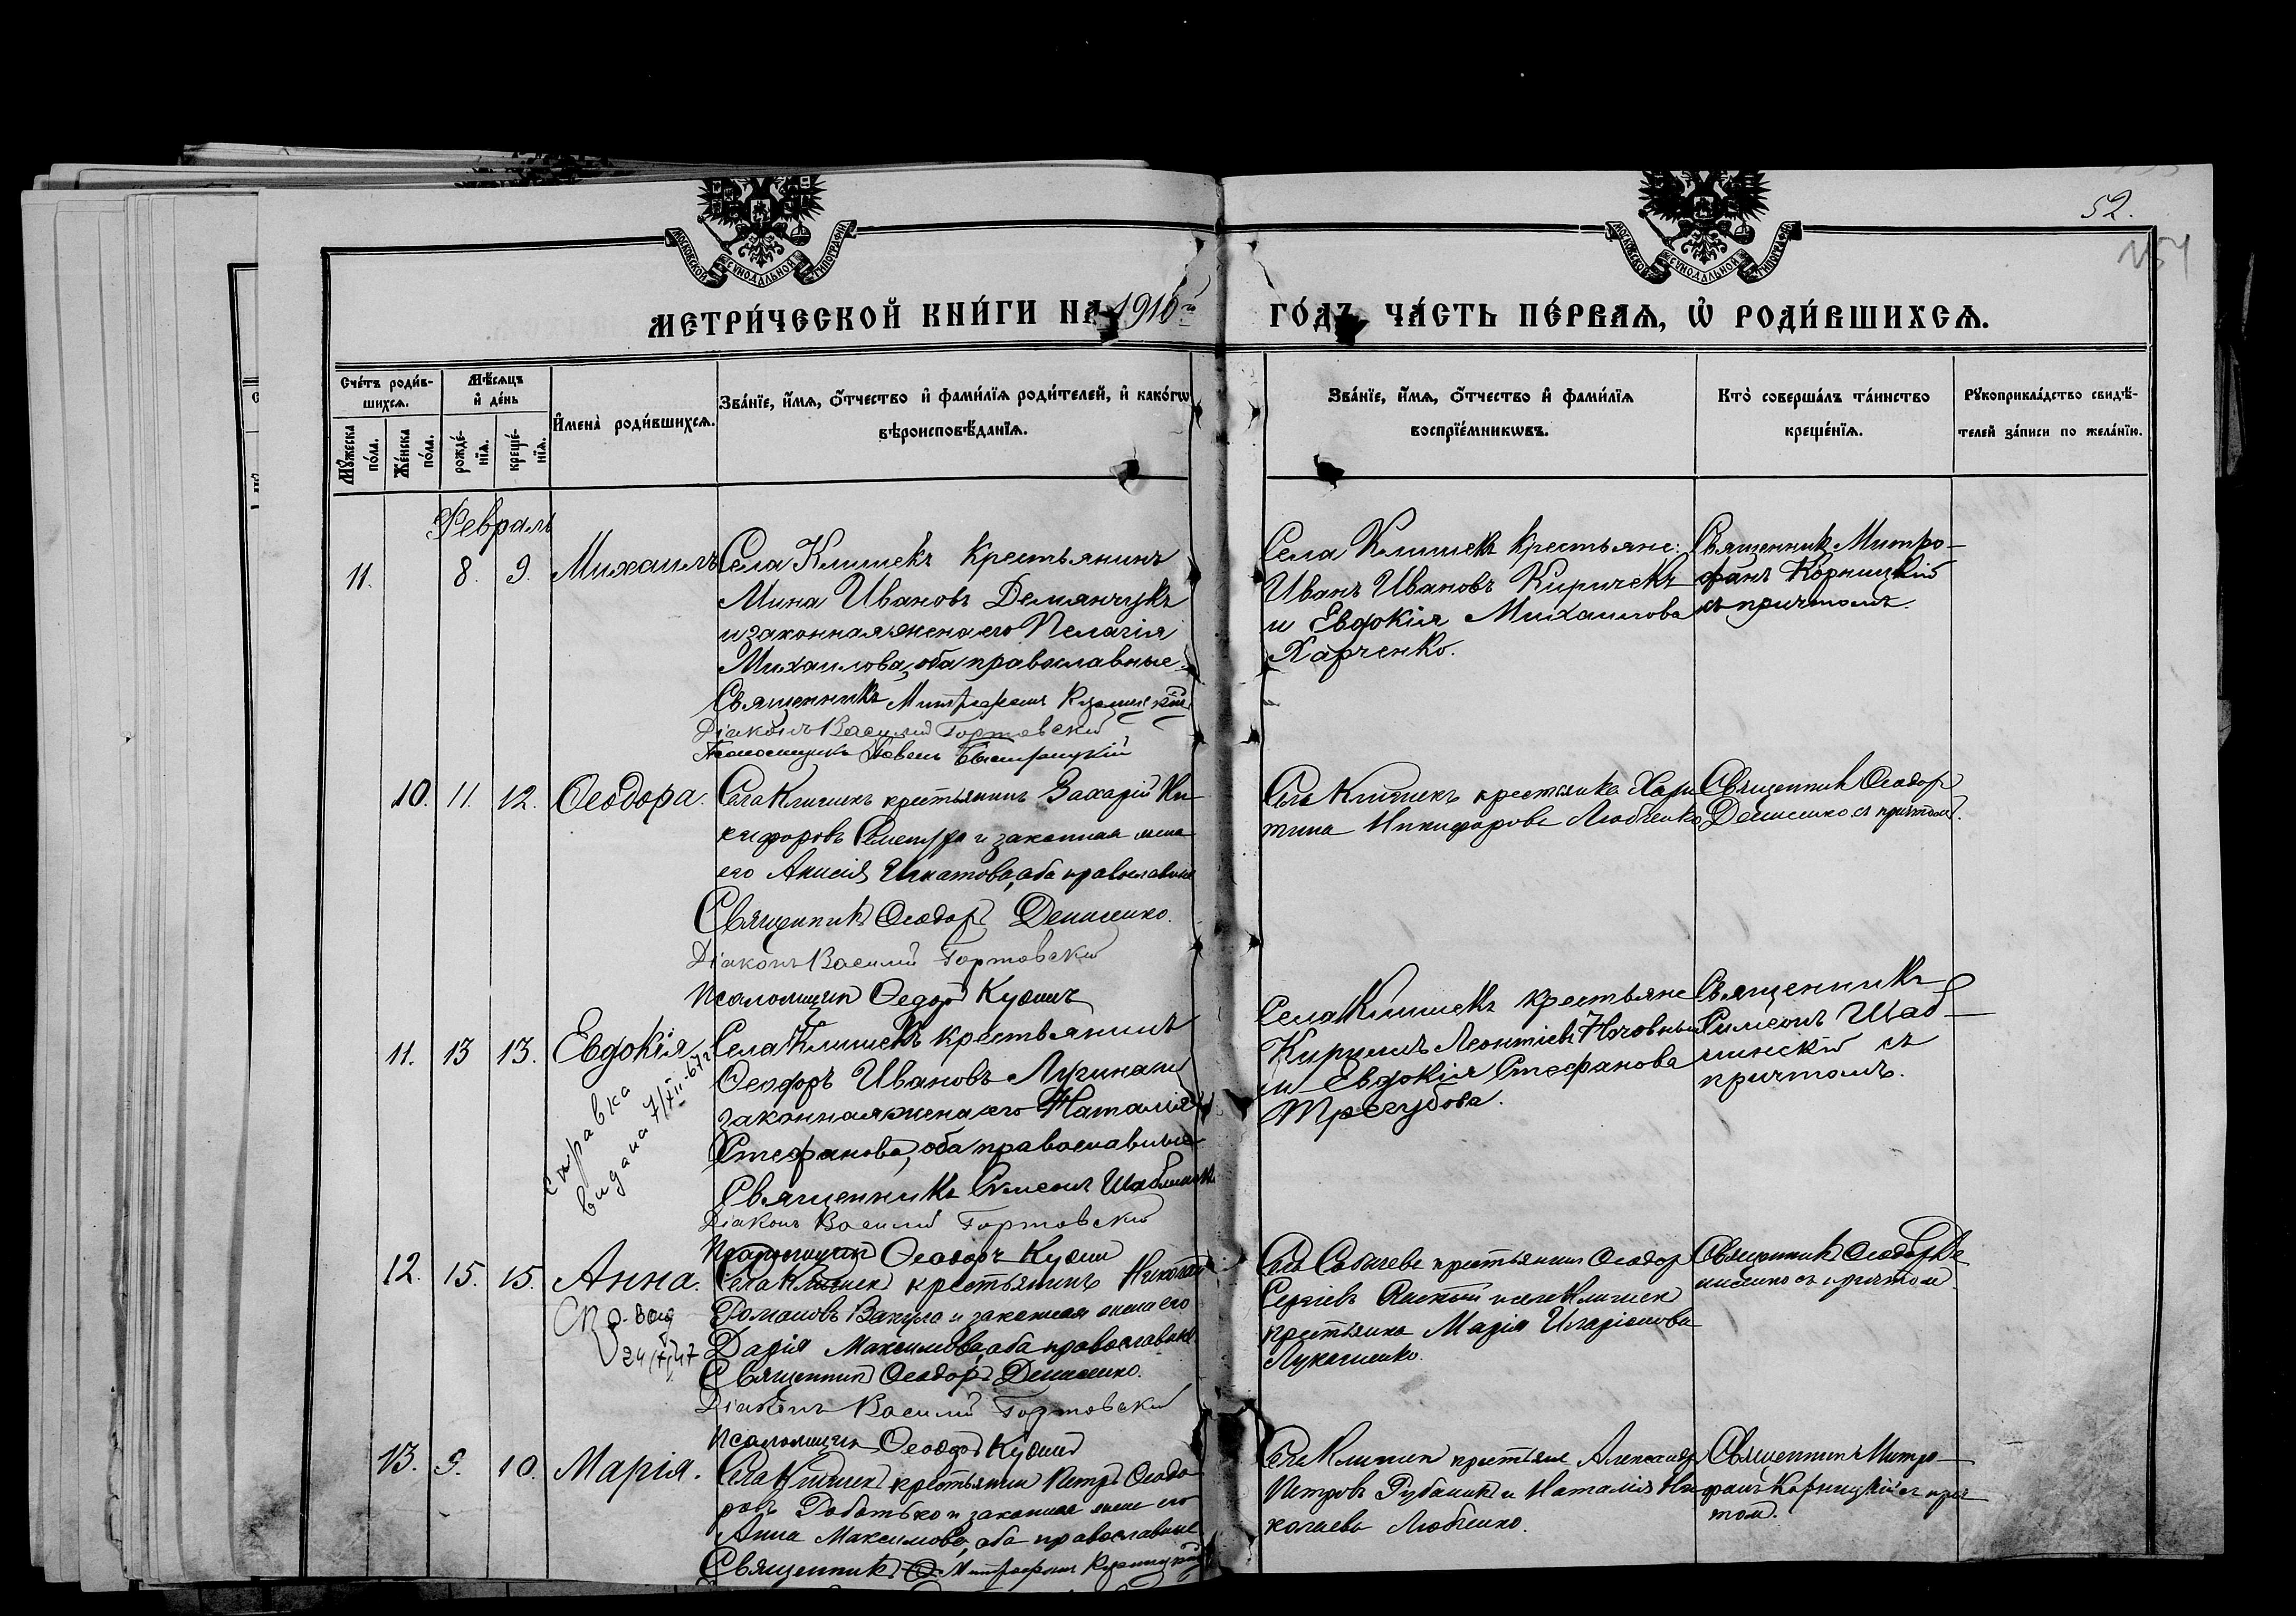 52.
МОСКОВСКОЙ СѴНОДАЛЬНОЙ ТИПОГРАФІИ
МОСКОВСКОЙ СѴНОДАЛЬНОЙ ТИПОГРАФІИ
МЕТРИ́ЧЕСКОЙ КНИ́ГИ НА 1916й ГО́ДЪ, ЧА́СТЬ ПЕ́РВАЯ, Ѡ҆ РОДИ́ВШИХСЯ.
Сче́тъ роди́в-
шихся.
Мꙋ́жеска
по́ла.
Же́нска
по́ла.
Мѣ́сяцъ
и҆ де́нь
рожде́-
нїя.
креще́-
нїя.
И҆мена̀ роди́вшихся.
Зва́нїе, и҆́мя, ѻ҆́тчество и҆ фами́лїя роди́телей, и҆ како́гѡ
вѣроисповѣ́данїя.
Зва́нїе, и҆́мя, ѻ҆́тчество и҆ фами́лїя
воспрїе́мникѡвъ.
Кто̀ соверша́лъ та́инство
креще́нїя.
Рꙋкоприкла́дство свидѣ́-
телей за́писи по жела́нїю.
Февраль
11. 8. 9. Михаилъ
Села Клишекъ крестьянинъ
Мина Ивановъ Демянчукъ
и законная жена его Пелагія
Михаилова, оба православные.
Священникъ Митрофанъ Корницкій
Діаконъ Василий Гортовский
Псаломщикъ Павелъ Быстрицкий
Села Клишекъ крестьяне:
Иванъ Ивановъ Киричекъ
и Евдокія Михаилова
Харченко.
Священник Митро-
фанъ Корницкій
съ причтомъ.
10. 11. 12. Ѳеодора.
Села Клишекъ крестьянинъ Захарій Ни-
кифоровъ и законная жена
его Анисія Игнатова, оба православные
Священникъ Ѳеодоръ Денисенко.
Діаконъ Василий Гортовский
Псаломщик Ѳедоръ Кушичъ
Села Клишекъ крестьянка Хари
тина Никифорова Любченко
Священник Ѳеодор
Денисенко съ причтом.
11. 13 13. Евдокія
справка
видана 7/XII-67г
Села Клишекъ крестьянинъ
Ѳеодоръ Ивановъ Лугина и
законная жена его Наталия
Стефанова, оба православные
Священникъ Симеонъ
Діаконъ Василий Гортовский
Псаломщик Ѳеодоръ Кушич
Села Клишекъ крестьяне
Кирилъ Леонтіевъ
и Евдокія Стефанова
Трегубова.
Священникъ
Симеонъ Шаб-
линскій съ
причтомъ.
12. 15. 15. Анна.
24/X/47
Села Клишек крестьянинъ Николай
Романовъ Вакула и законная жена его
Дарія Максимова, оба православные
Священник Ѳеодоръ Денисенко.
Діаконъ Василий Гортовский
Псаломщик Ѳеодор Кушич
Села Собичева крестьянин Ѳеодор
Сергіевъ и села Клишек
крестьянка Марія Иларіонова
Лукашенко.
Священникъ Ѳеодоръ Де
нисенко съ причтом
13. 9. 10. Марія.
Села Клишек крестьянин Петръ Ѳеодо
ровъ и законная жена его
Анна Максимова, оба православные
Священникъ Митрофанъ Корницкій
Села Клишек крестьяне Александр
Петровъ Рубаник и Наталія Ни
колаева Любченко.
Священникъ Митро-
фанъ Корницкій съ прич
том.